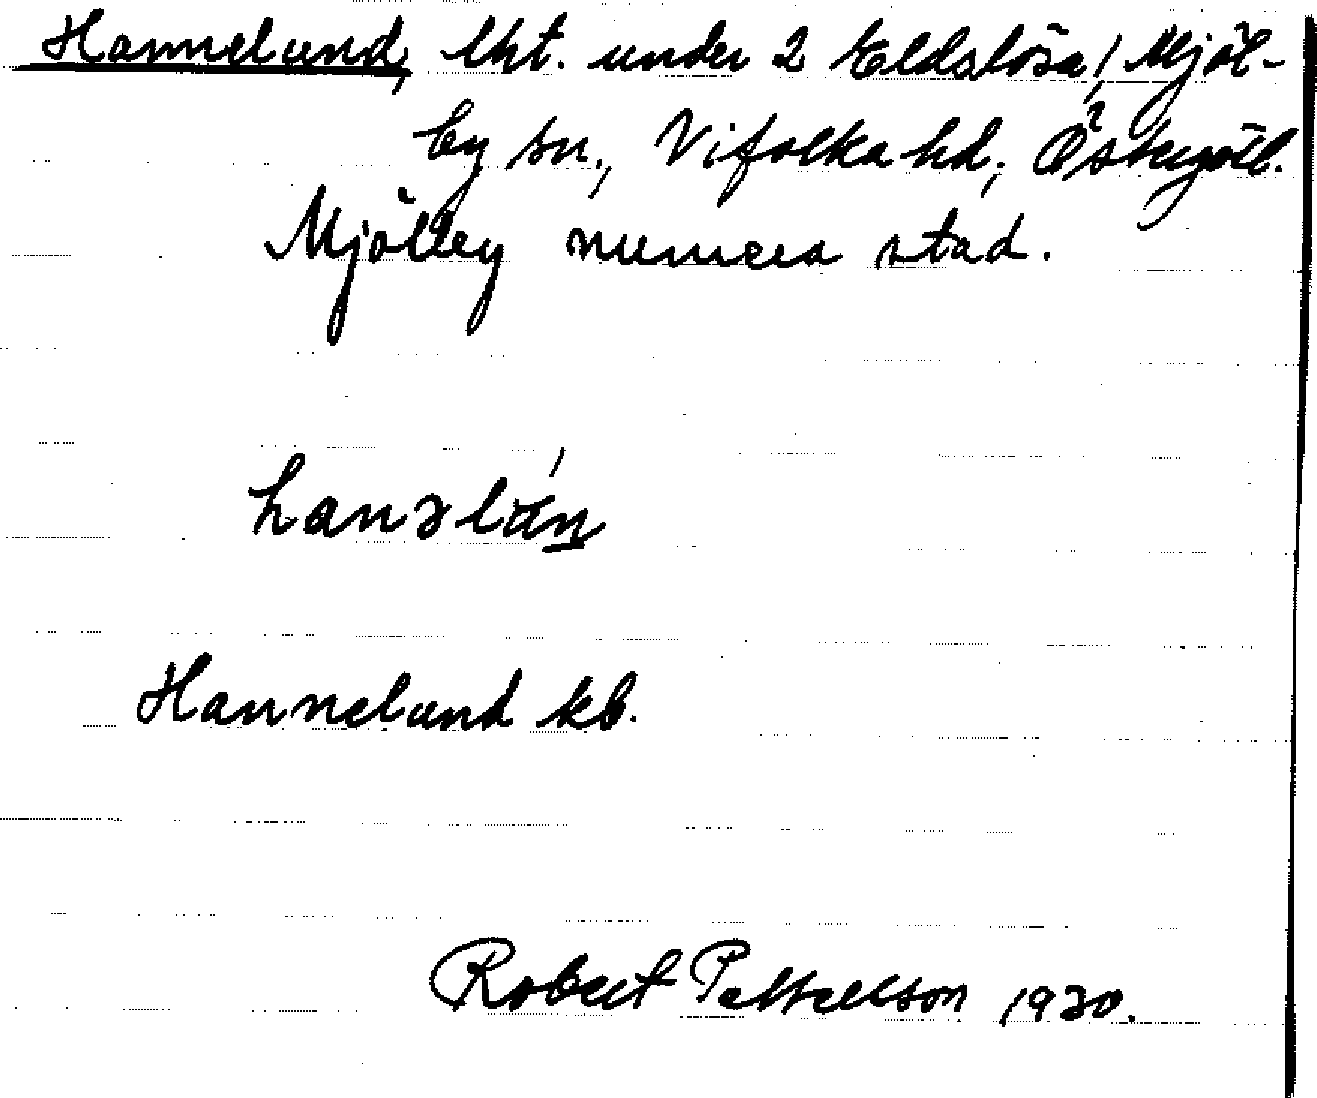 Hannelund, lht. under 2 Eldslösa, Mjöl-
by sn., Vifolka hd, Östergötl.
Mjölby numera stad.
hanəlún
Hannelund kb.
Robert Pettersson 1930.